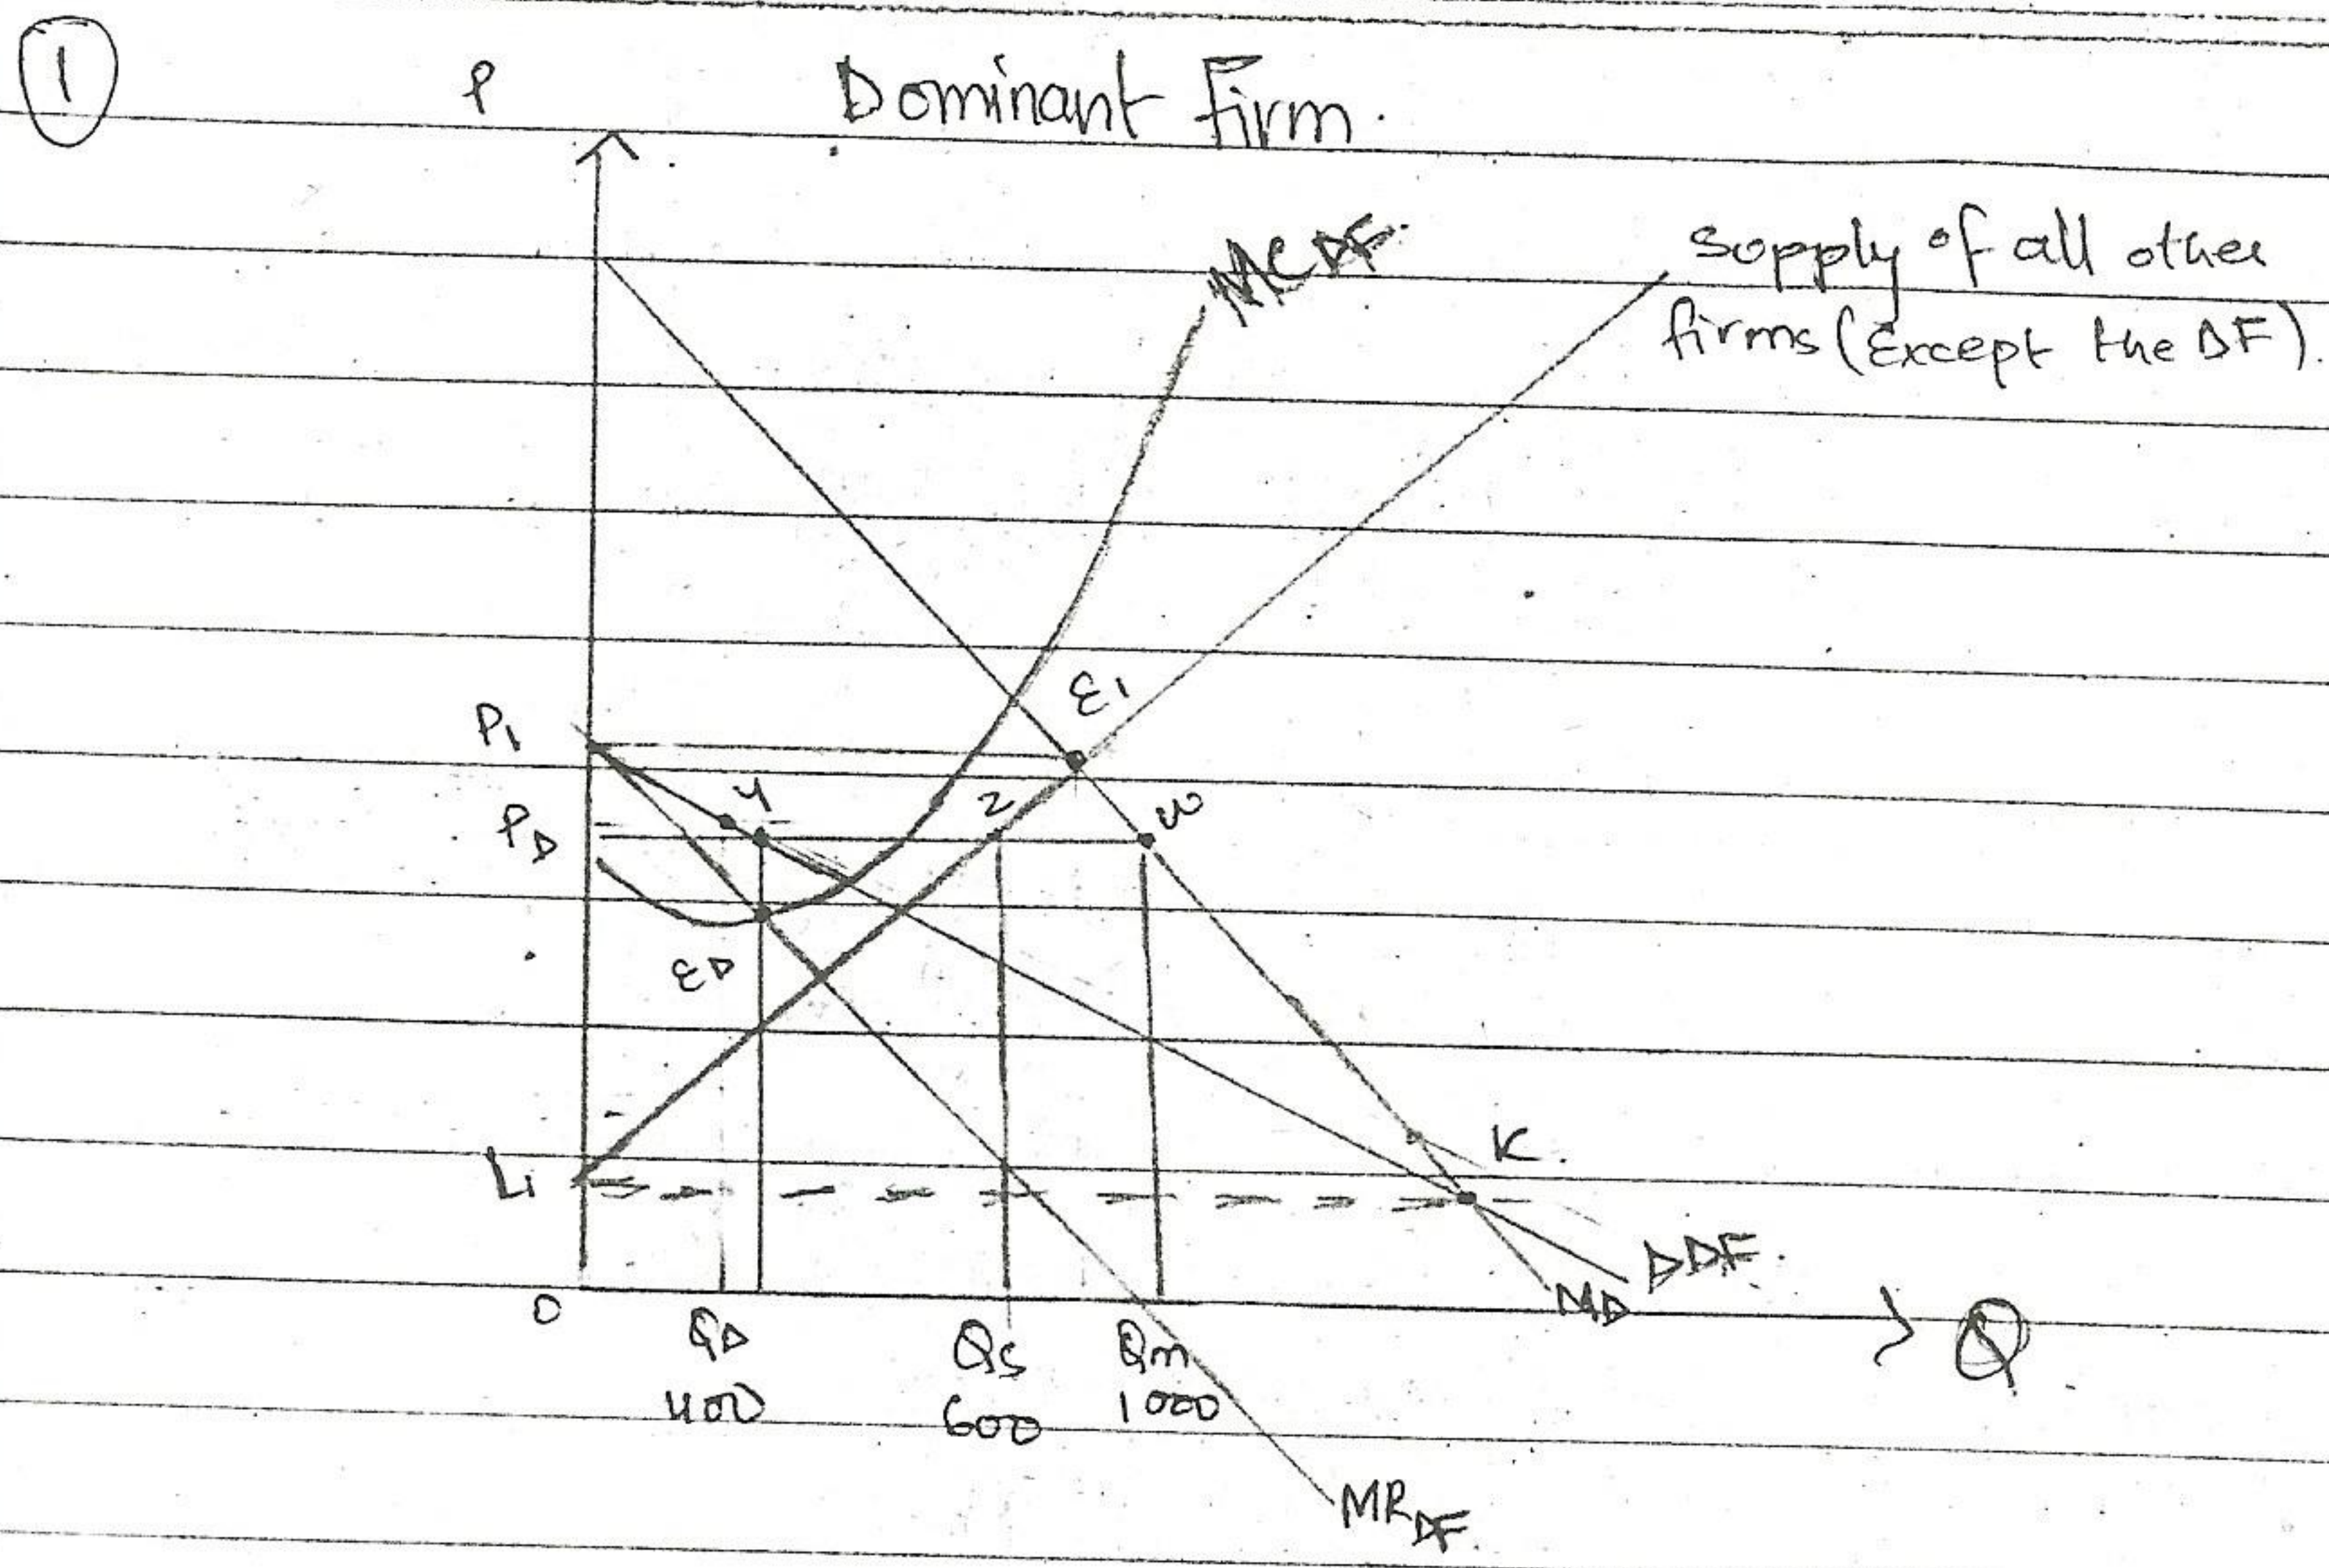 1
P
Dominant Firm.
MCDF.
Supply of all other
firms (Except the DF).
E1
P1
Y
Z
W
PD
ED
L1
K.
DDF.
MD
O
QD
Qs
Qm
Q
400
600
1000
MRDF.